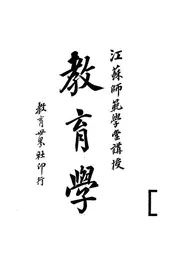 江蘇師範學堂講授
教育學
教育世界社印行